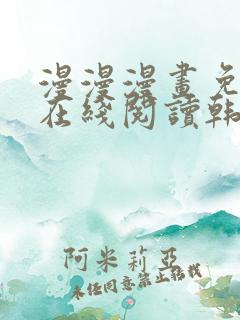 漫漫漫畫免
在綫閱讀韓
阿米莉亞
未经同意禁止转载